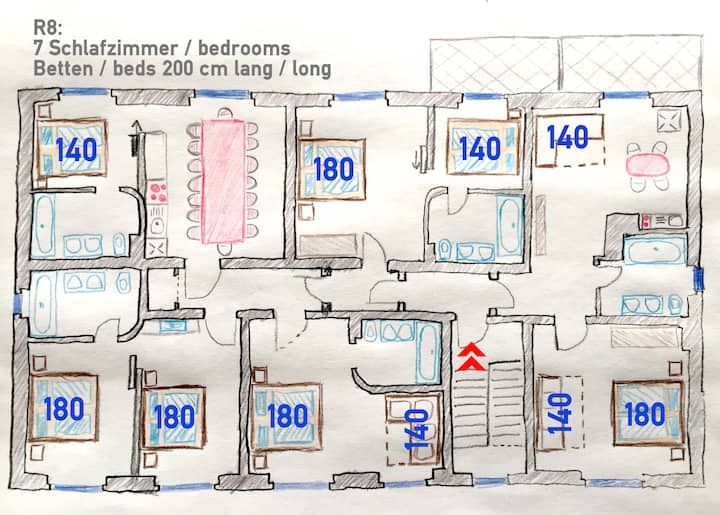 R8:
7 Schlafzimmer / bedrooms
Betten / beds 200 cm lang / long
140
180
140
140
180
180
180
140
140
180